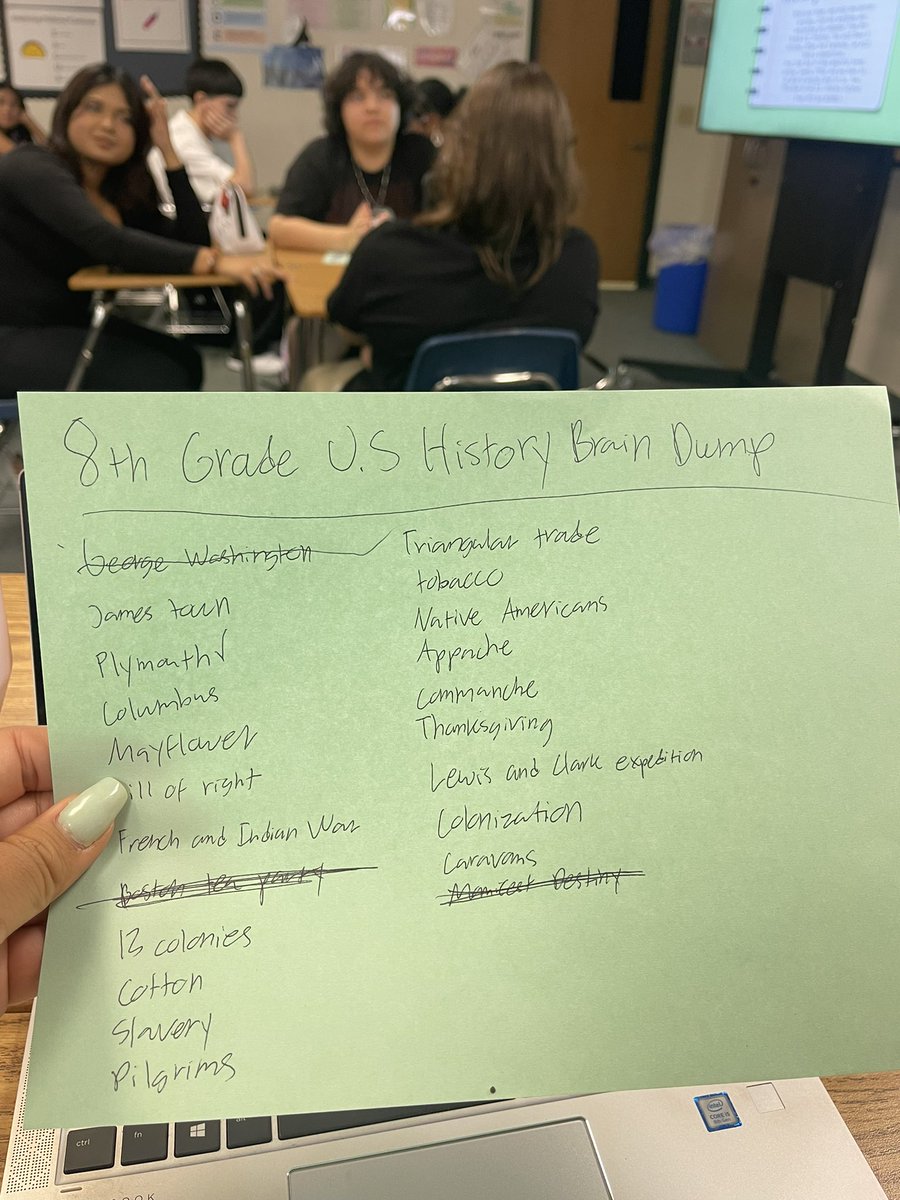 8th Grade U.S History Brain Dump
George Washington
James town
Plymouth✓
Columbus
Mayflower
ill of right
French and Indian War
Boston tea party
13 colonies
Cotton
Slavery
Pilgrims
Triangular trade
tobacco
Native Americans
Appache
Commanche
Thanksgiving
Lewis and Clark expedition
Colonization
Caravans
Manifest Destiny
ctrl
fn
alt
intel
CORE i5
8th Gen